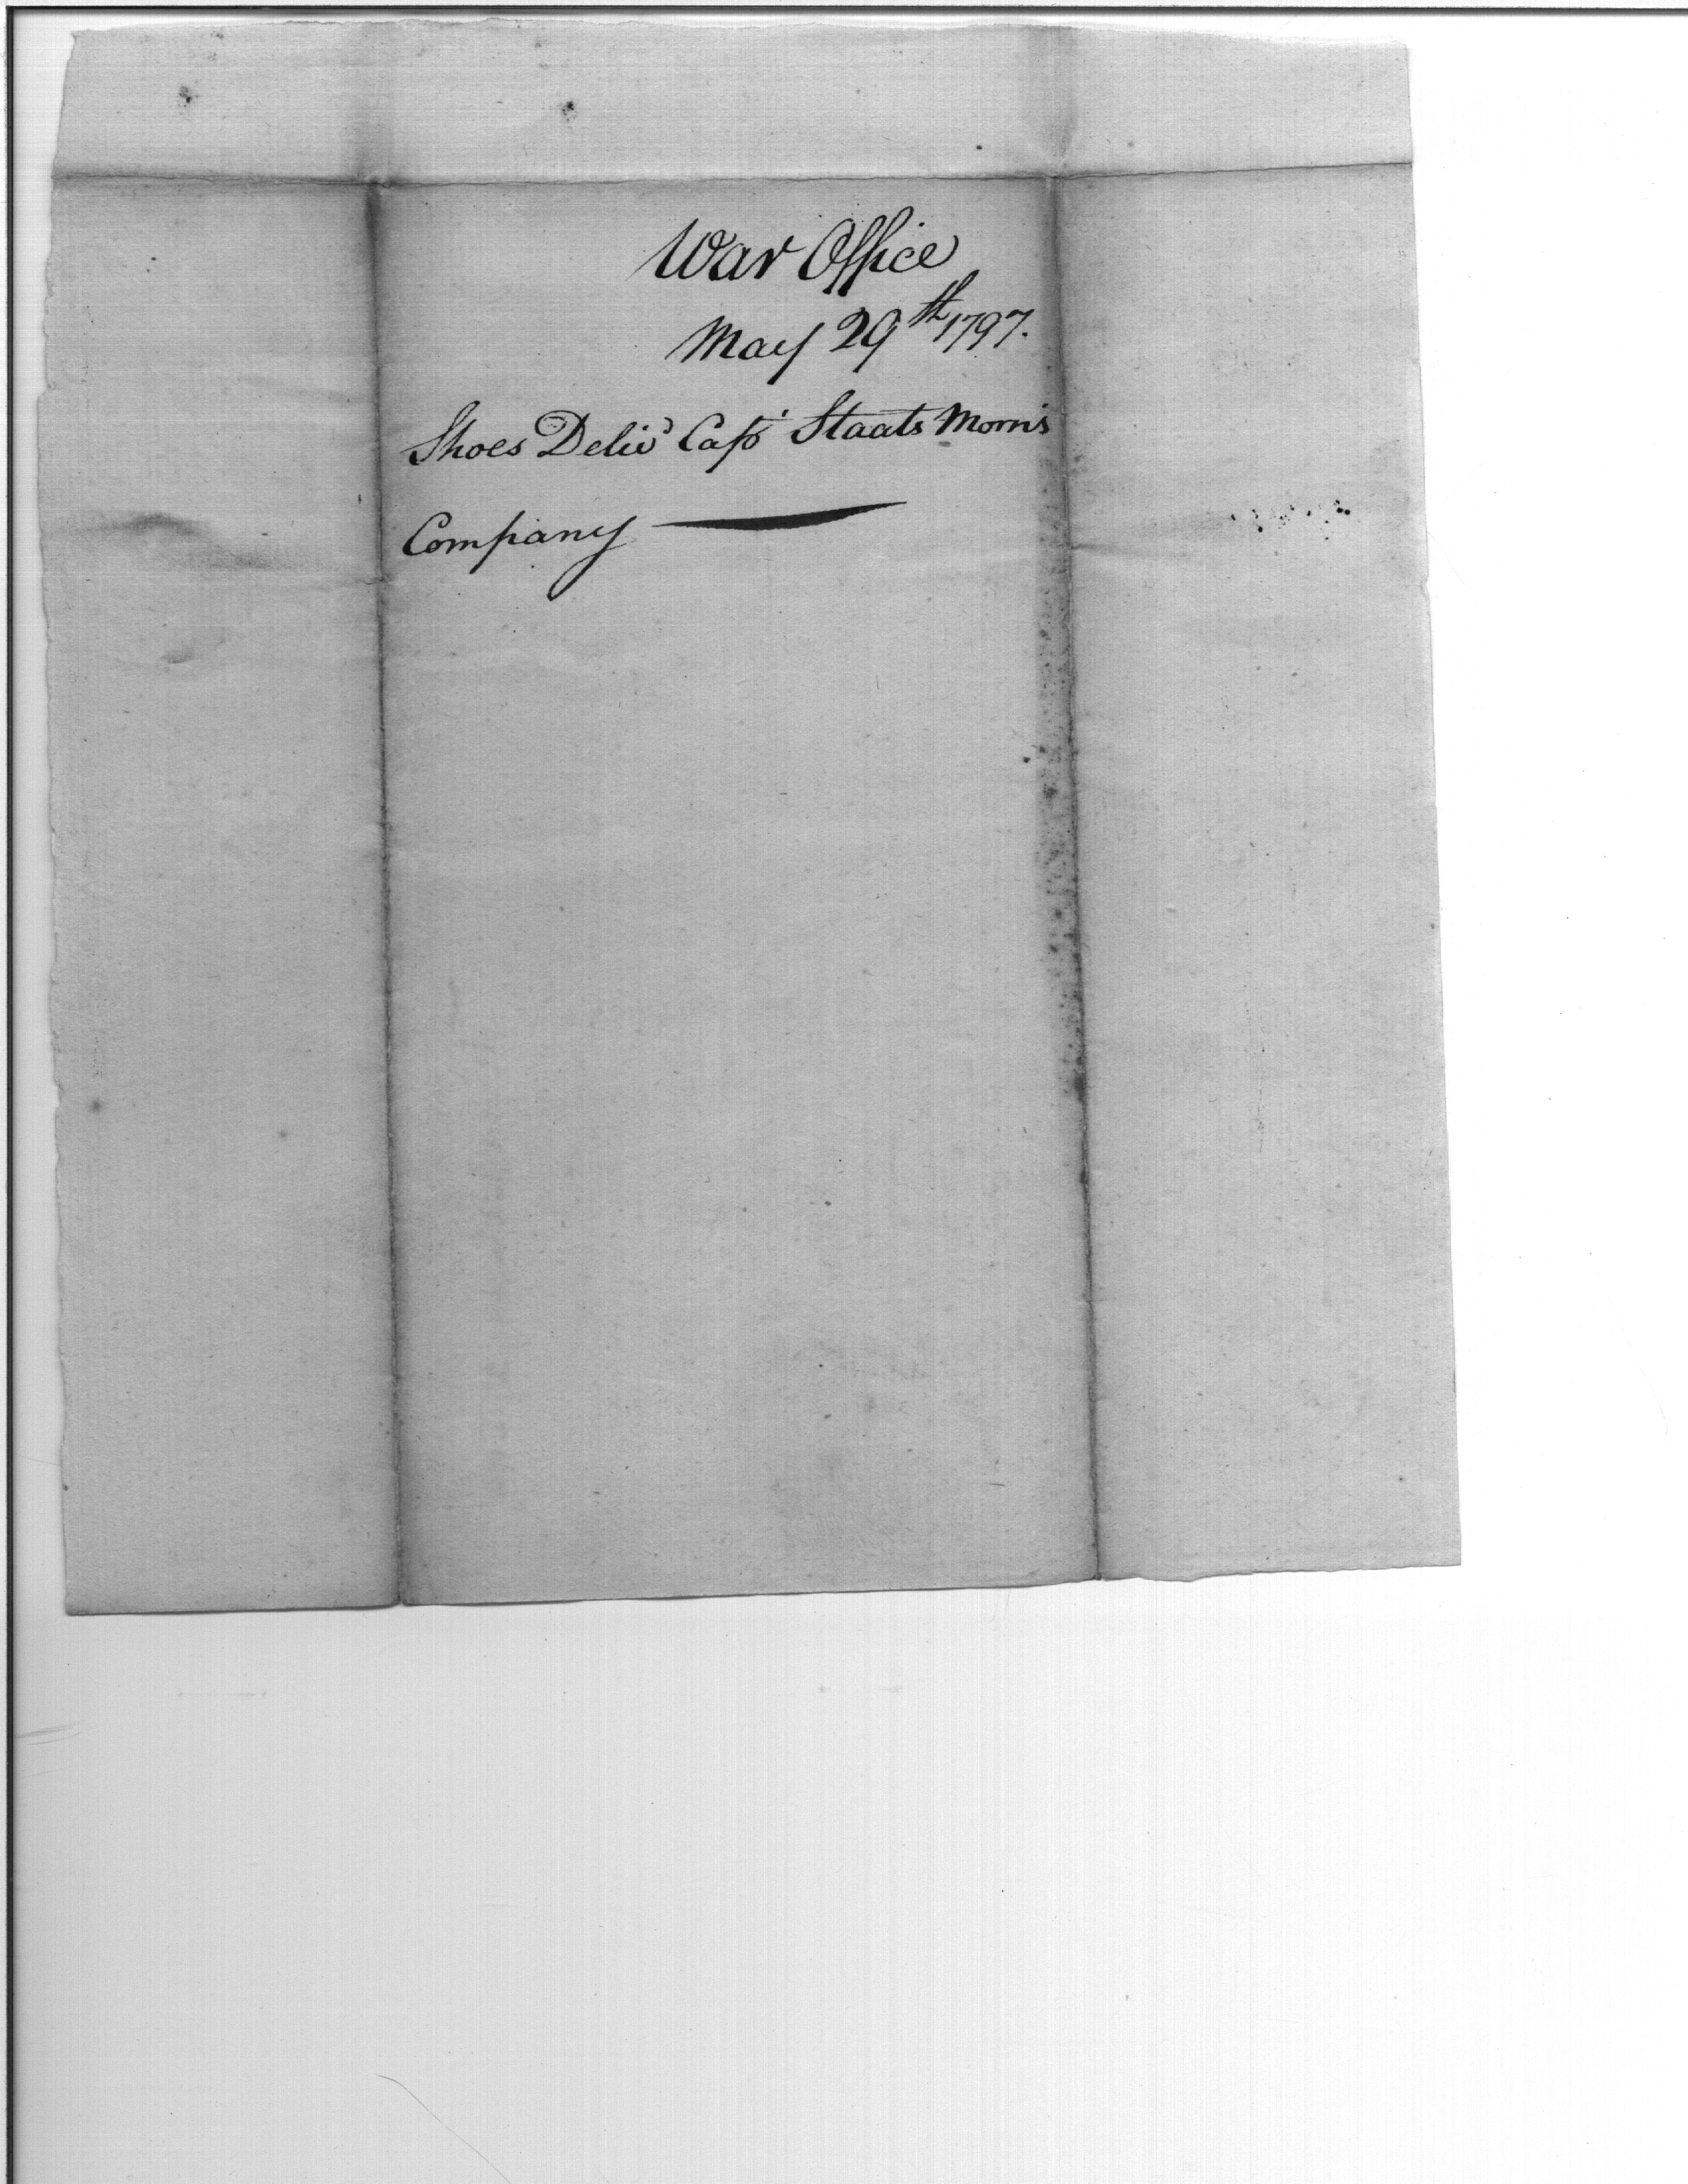 War Office
May 29th 1797.
Shoes Delivd Capt Staats Morris
Company